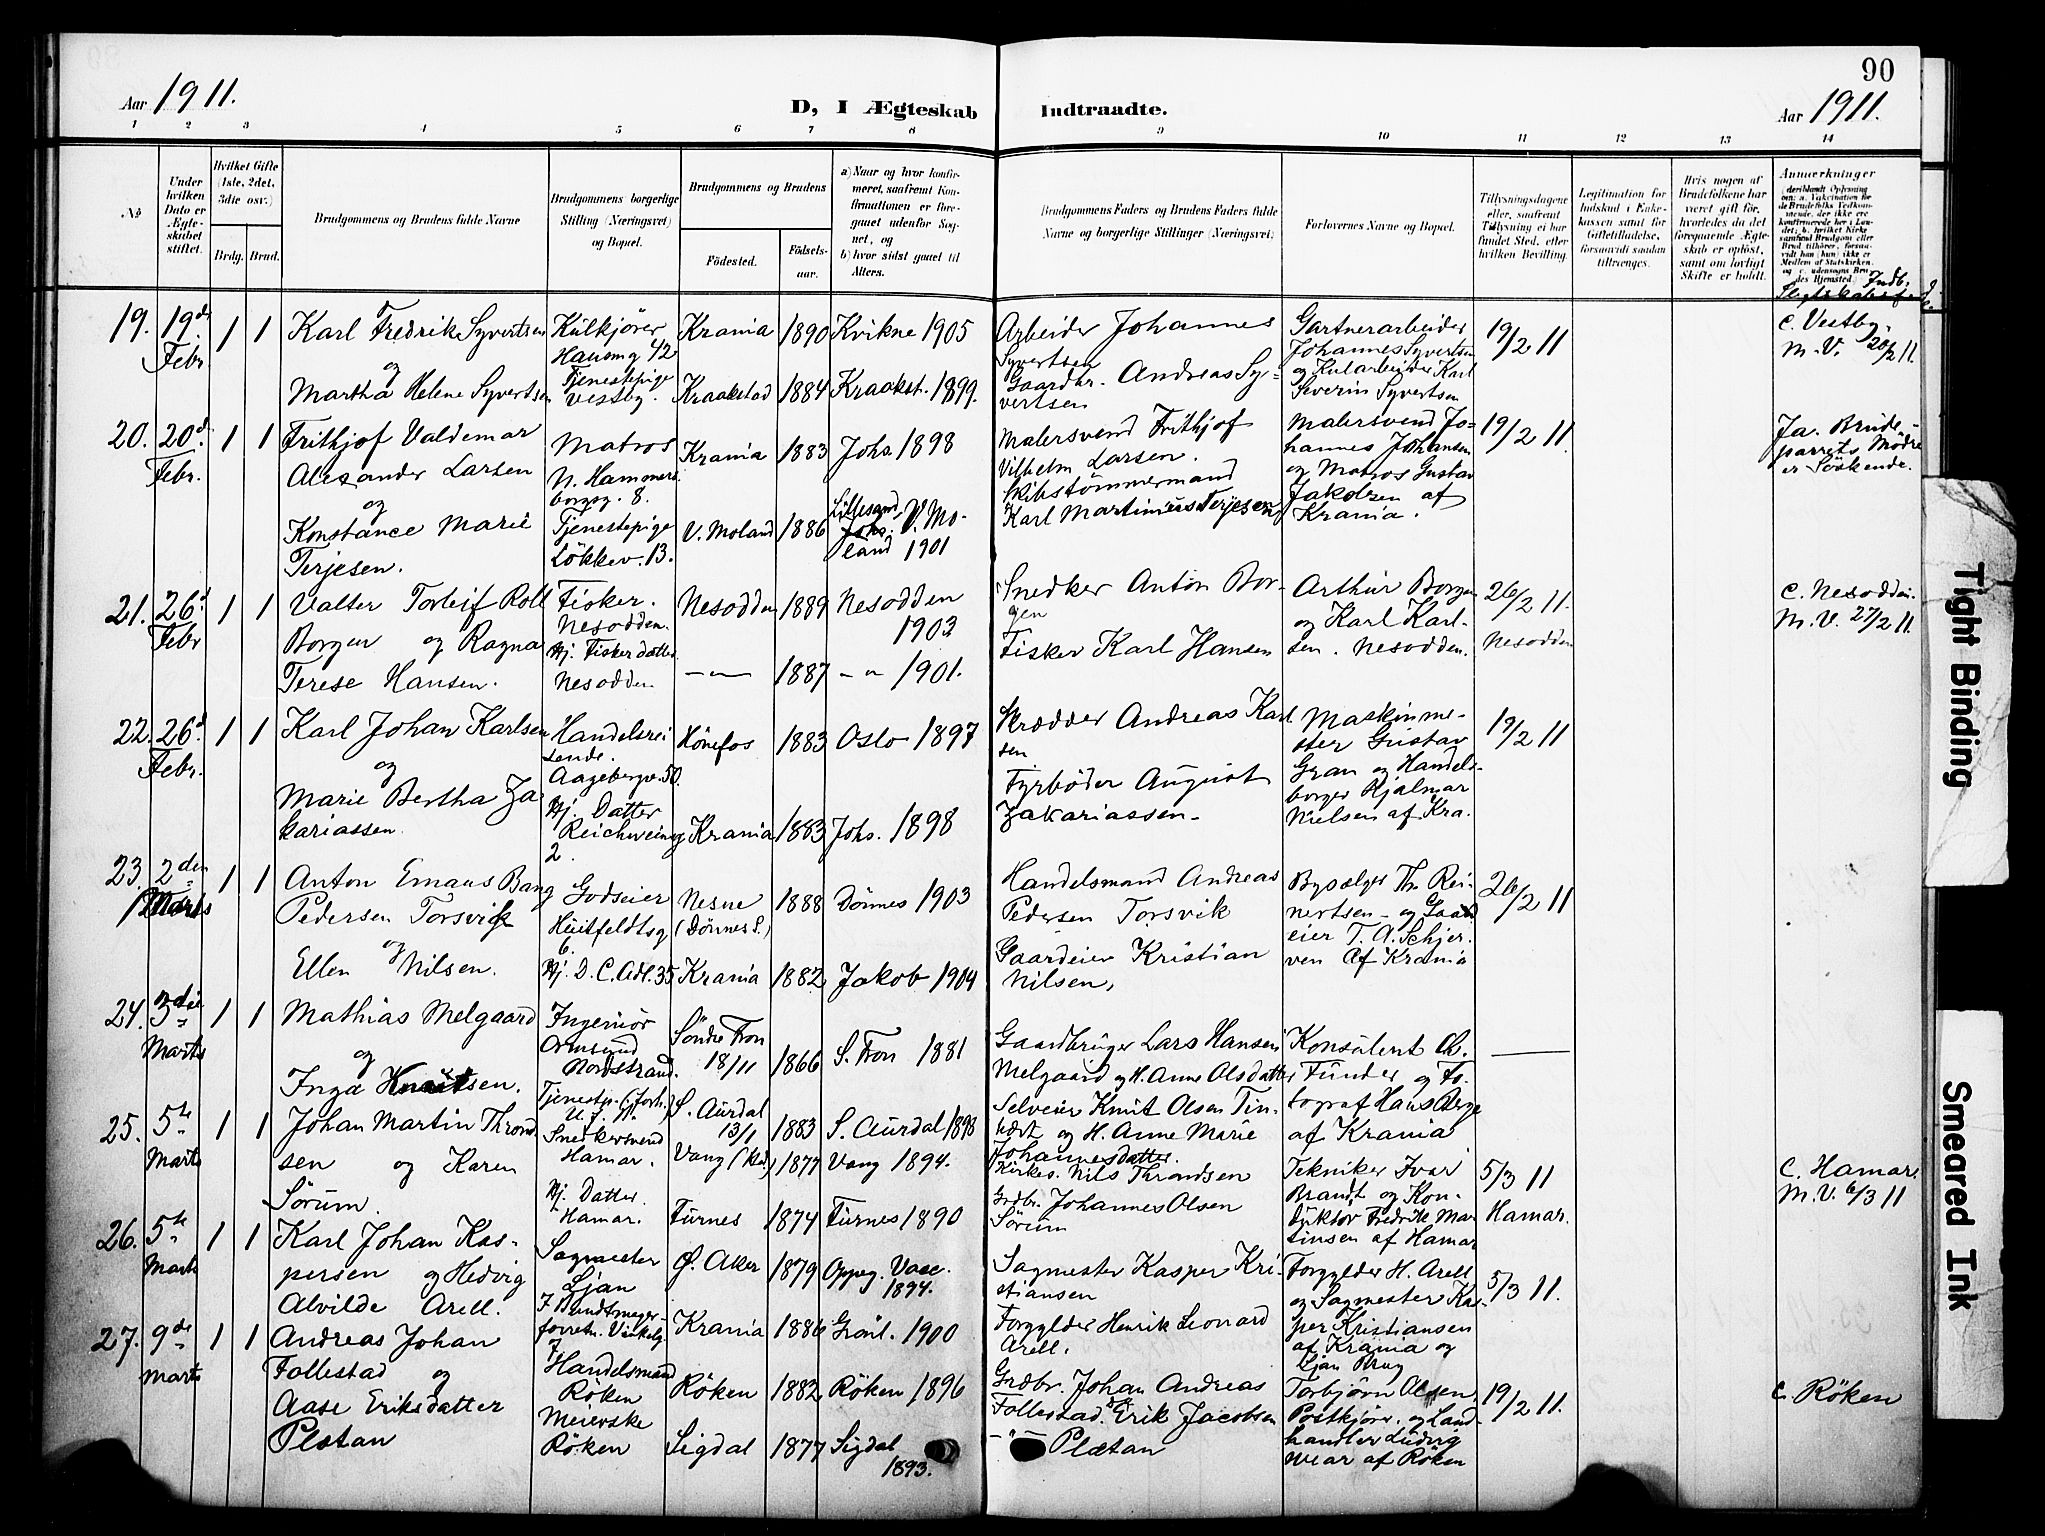 90
Aar 1911.
D, I Ægteskab Indtraadte.
Aar 1911.
1 2 3 4 5 6 7 8 9 10 11 12 13 14
No
Under hvilken Dato er Ægteskabet stiftet.
Hvilket Gifte (1ste, 2det, 3die osv.)
Brdg. Brud.
Brudgommens og Brudens fulde Navne
Brudgommens borgerlige Stilling (Næringsvei) og Bopæl.
Brudgommens og Brudens
Fødested.
Fødselsaar.
a) Naar og hvor konfirmeret, saafremt Konfirmationen er foregaaet udenfor Sognet, og
b) hvor sidst gaaet til Alters.
Brudgommens Faders og Brudens Faders fulde Navne og borgerlige Stillinger (Næringsvei)
Forlovernes Navne og Bopæl.
Tillysningsdagene eller, saafremt Tillysning ei har fundet Sted, efter hvilken Bevilling.
Legitimation for Indskud i Enkekassen samt for Giftetilladelse, forsaavidt saadan tiltrænges.
Hvis nogen af Brudefolkene har været gift før, hvorledes da det foregaaende Ægteskab er opløst, samt om lovligt Skifte er holdt.
Anmærkninger
19. 19d Febr 1 1
Karl Fredrik Syvertsen
og
Martha Helene Syvertsen
Kulkjører
Hausmg 42
Tjenestepige
Vestby.
Krania 1890 Kvikne 1905
Kraakstad 1884 Kraakst. 1899.
Arbeider Johannes
Syvertsen
Gaardbr. Andreas Sy-
vertsen
Gartnerarbeider
Johannes Syvertsen
og Kularbeider Karl
Severin Syvertsen
19/2 11
C. Vestby.
M. V. 20/2 11.
20. 20d. Febr. 1 1
Frithjof Valdemar
Alexander Larsen
og
Konstance Marie
Terjesen.
Matros
N. Hammers
borgg. 8.
Tjenestepige
Løkkev. 13.
Krania 1883 Johs. 1898
V. Moland 1886 Lillesand, V. Mo-
land 1901
Malersvend Frithjof
Vilhelm Larsen.
Skibstømmermand
Karl Martinius Terjesen
Malersvend Jo-
hannes Johansen
og Matros Gustav
Jakobsen af
Krania.
19/2 11
Ja. Brude-
parrets Mødre
er Søskende.
21. 26d Febr 1 1
Valter Torleif Roll
Borgen og Ragna
Terese Hansen.
Fisker.
Nesodden.
Hj. Fisker datter
Nesodden
Nesodden 1889 Nesodden
1903
— " — 1887 - " 1901.
Snedker Anton Bor-
gen
Fisker Karl Hansen
Arthur Borgen
og Karl Karl-
sen. Nesodden.
26/2 11.
Nesodden
C. Nesodden.
M. V. 27/2 11.
22. 26d Febr. 1 1
Karl Johan Karlsen
og
Marie Bertha Za-
kariassen.
Handelsrei
sende.
Aagebergv. 50.
Hj. Datter
Reichweinsg
2.
Hønefos 1883 Oslo 1897
Krania 1883 Johs. 1898
Skrædder Andreas Karl
sen
Fyrbøder August
Zakariassen.
Maskinme-
ster Gustav
Gran og Handels-
borger Hjalmar
Nielsen af Kra.
19/2 11
23. 2den Marts 1 1
Anton Emaus Bang
Pedersen Torsvik
og
Ellen Nilsen.
Godseier
Huitfeldtsg
6.
Hj. D. C. Adl. 35
Nesne 1888 Dønnes 1903
(Dønnes S.)
Krania 1882 Jakob 1904
Handelsmand Andreas
Pedersen Torsvik
Gaardeier Kristian
Nilsen,
Bysælger Th. Rei-
nertsen - og Gaard
eier T. A. Schjer-
ven af Krania
26/2 11
24. 3die Marts 1 1
Mathias Melgaard
og
Inga Knutsen.
Ingeniør
Ormsund
Nordstrand.
Søndre Fron
18/11 1866 S. Fron 1881
S. Aurdal
13/1 1883 S. Aurdal 1898
Gaardbruger Lars Hansen
Melgaard og H. Anne Olsdatter
Selveier Knut Olsen
og H. Anne Marie
Johannesdatter.
Konsulent Ch.
Funder og Fo-
tograf Hans Berge
af Krania
—
25. 5te Marts 1 1
Johan Martin Thrond
sen og Karen
Sørum.
Snedkersvend
Hamar.
Hj. Datter.
Hamar.
Vang 1877 Vang 1894.
Furnes 1874 Furnes 1890
Nils Throndsen
Grdbr. Johannes Olsen
Sørum
Tekniker Ivar
Brandt og Kon-
duktør Fredrik Mar
tinsen af Hamar
5/3 11
Hamar.
C. Hamar.
M. V. 6/3 11
26. 5te Marts 1 1
Karl Johan Kas-
persen og Hedvig
Alvilde Arell.
Sagmester
Ljan
Ø. Aker 1879 Oppeg.
1894.
Krania 1886 Grønl. 1900
Sagmester Kasper Kri-
stiansen
Forgylder Henrik Leonard
Arell.
Forgylder H. Arell
og Sagmester Kas-
per Kristiansen
af Krania og
Ljan Brug
5/3 11.
27. 9de Marts 1 1
Andreas Johan
Follestad og
Aase Eriksdatter
Plætan
Handelsmand
Røken
Meierske
Røken
Røken 1882 Røken 1896
Sigdal 1877 Sigdal
1893.
Grdbr. Johan Andreas
Follestad.
Erik Jacobsen
Plætan
Torbjørn Olsen,
Postkjører. og Land-
handler Ludvig
Wear af Røken
19/2 11.
C. Røken
Tight Binding
Smeared Ink